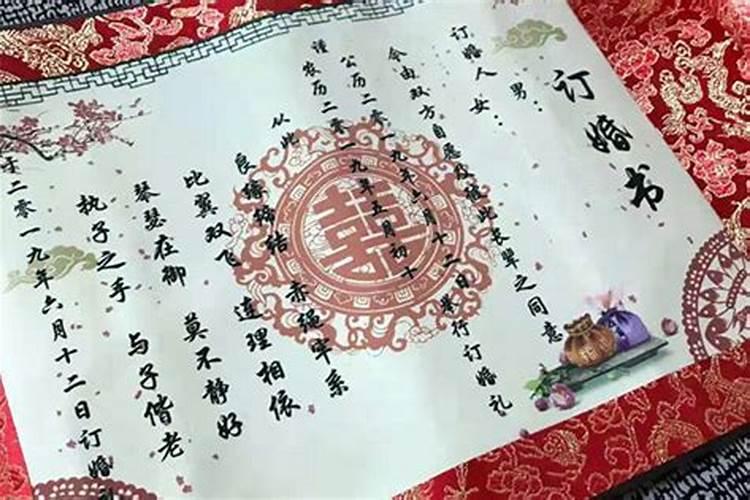 订婚书
订婚人 男：
女：
今由双方自愿及征此长辈之同意
公历二零一九年六月十二日举行订婚礼
谨农历二零一九年五月初十
从此
良缘缔结 赤绳牢系
比翼双飞 连理相依
琴瑟在御 莫不静好
执子之手 与子偕老
于二零一九年六月十二日订婚